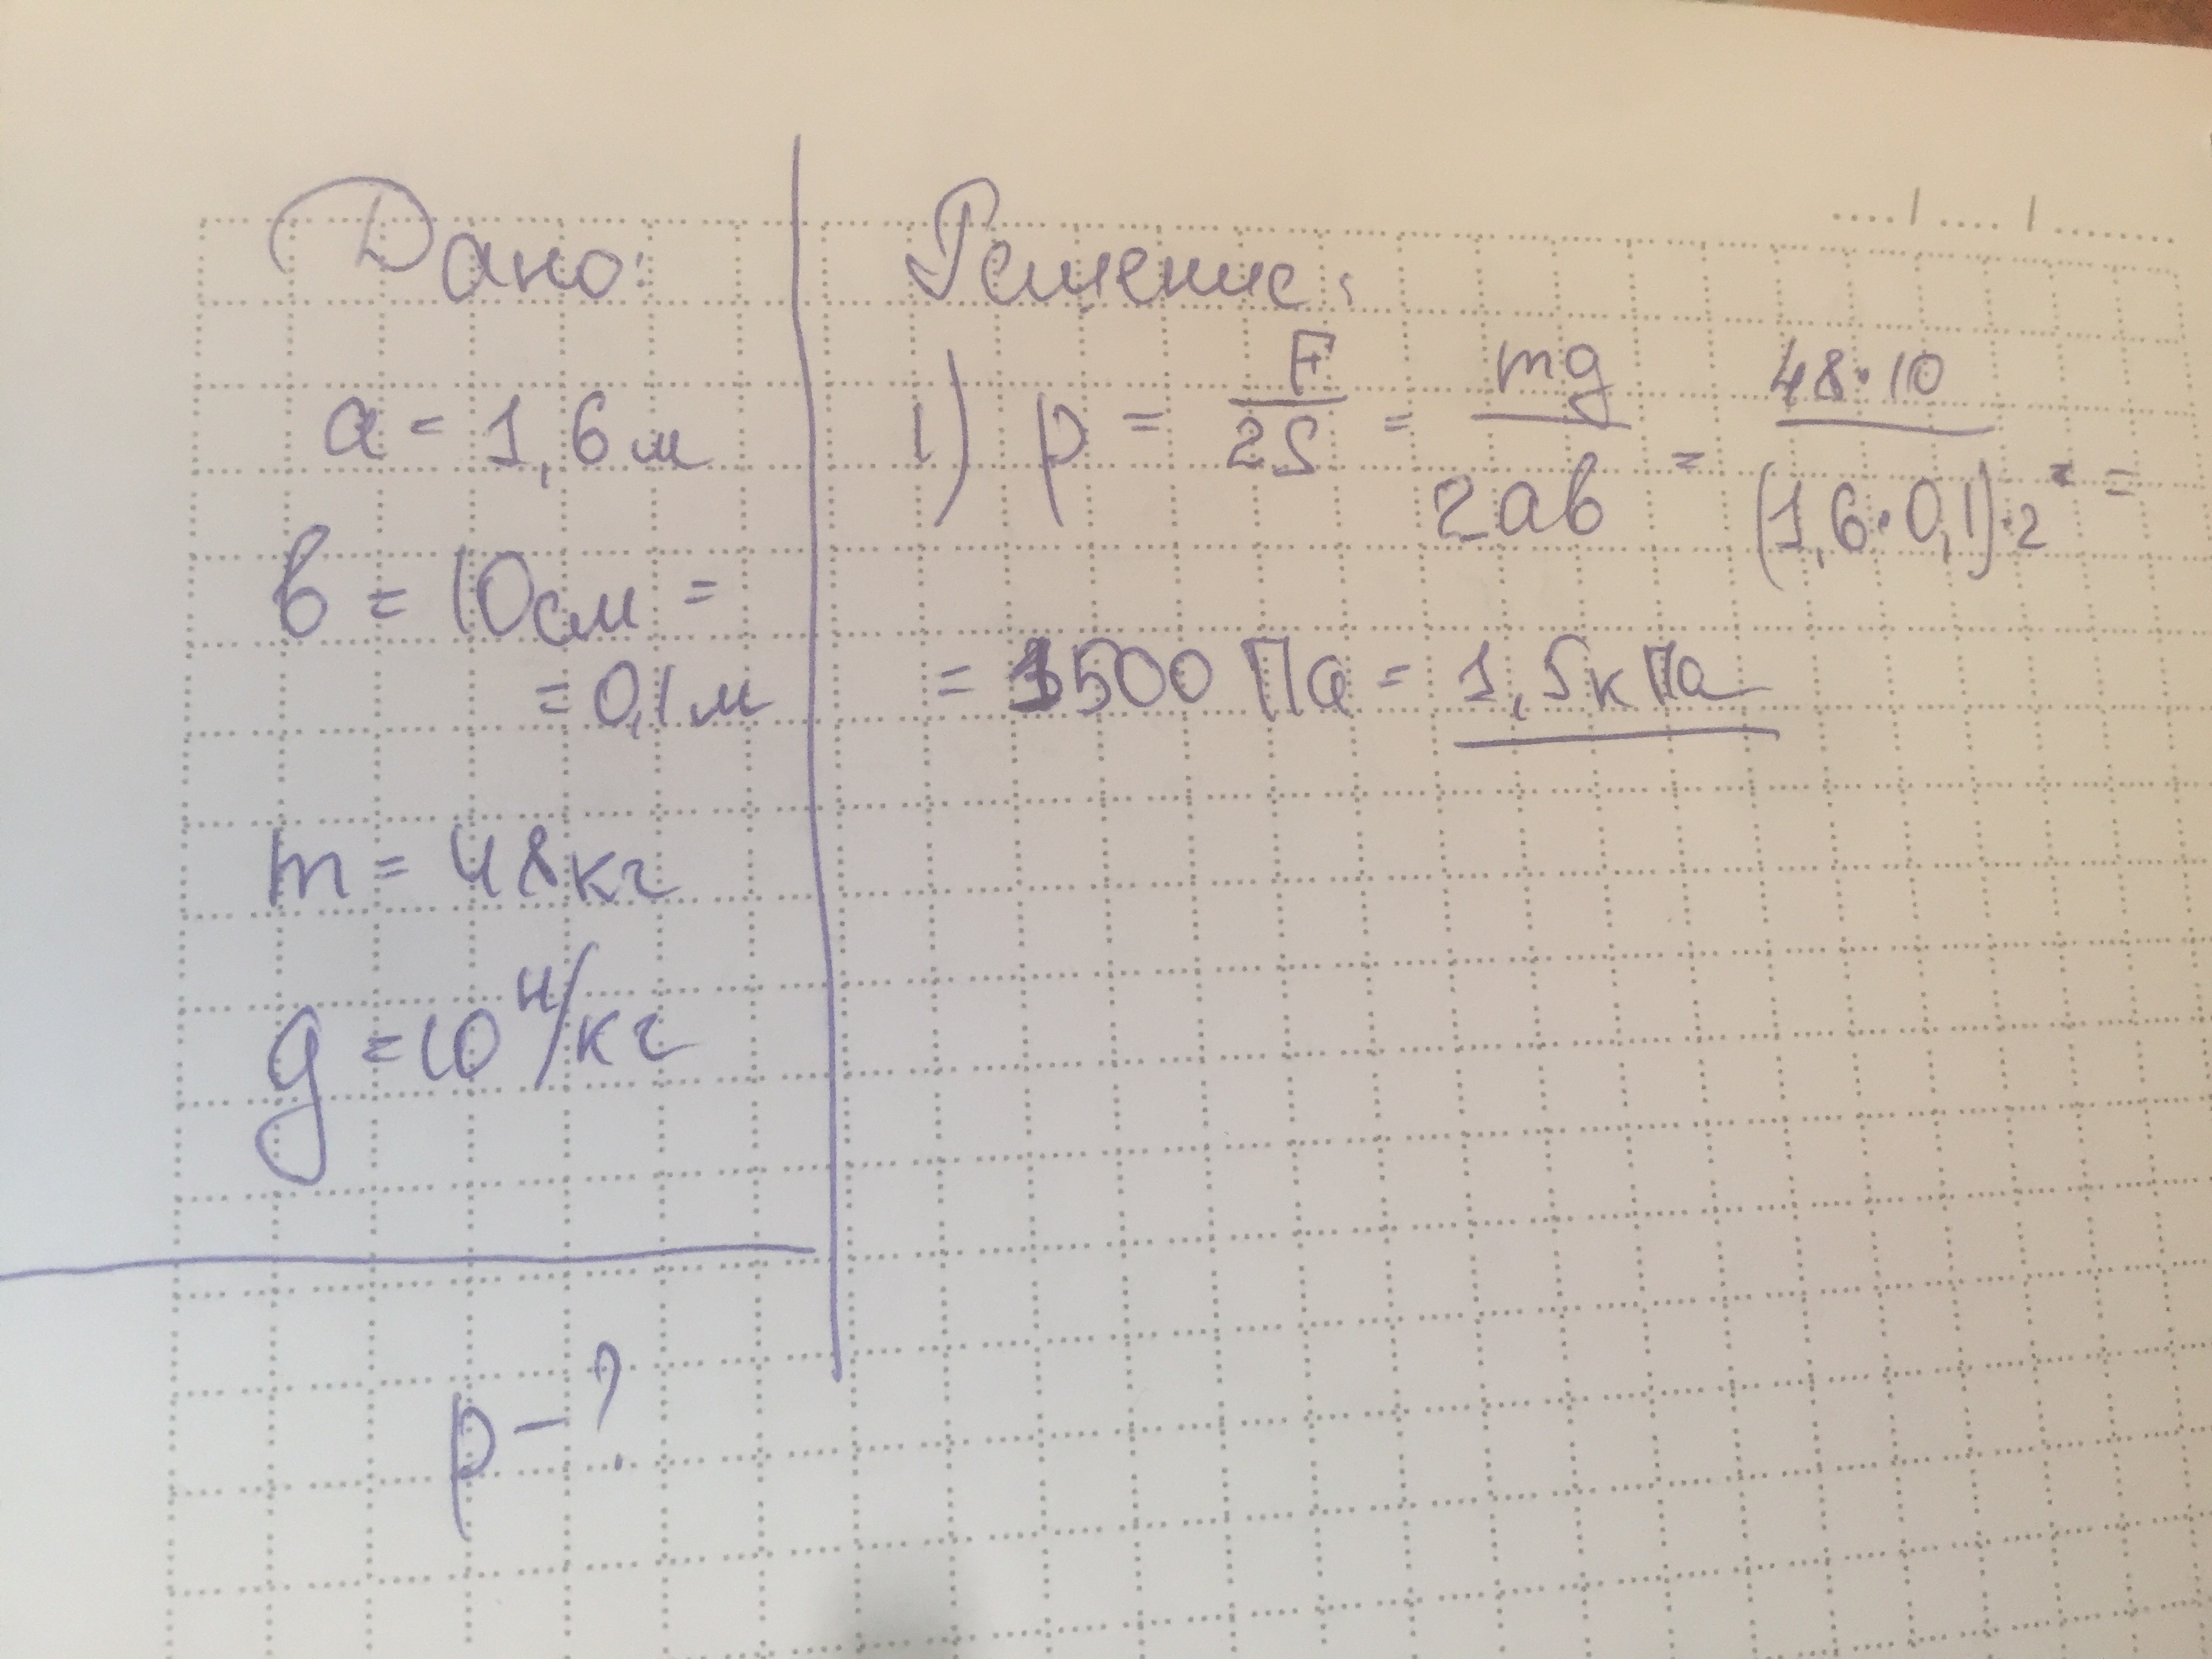 Дано:
a = 1,6 м
b = 10 см =
= 0,1 м
m = 48 кг
g = 10 Н/кг
p - ?
Решение:
1) p = F/2S = mg/2ab = 48·10/(1,6·0,1)·2 =
= 1500 Па = 1,5 кПа